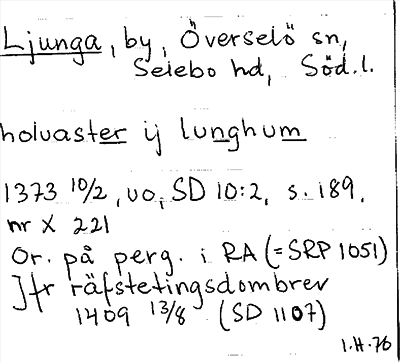 Ljunga, by, Överselö sn,
Selebo hd, Söd.l.
holuaster ij lunghum
1373 10/2, uo, SD 10:2, s. 189,
nr X 221
Or. på perg. i RA (=SRP 1051)
Jfr räfstetingsdombrev
1409 13/8 (SD 1107)
I.H.76